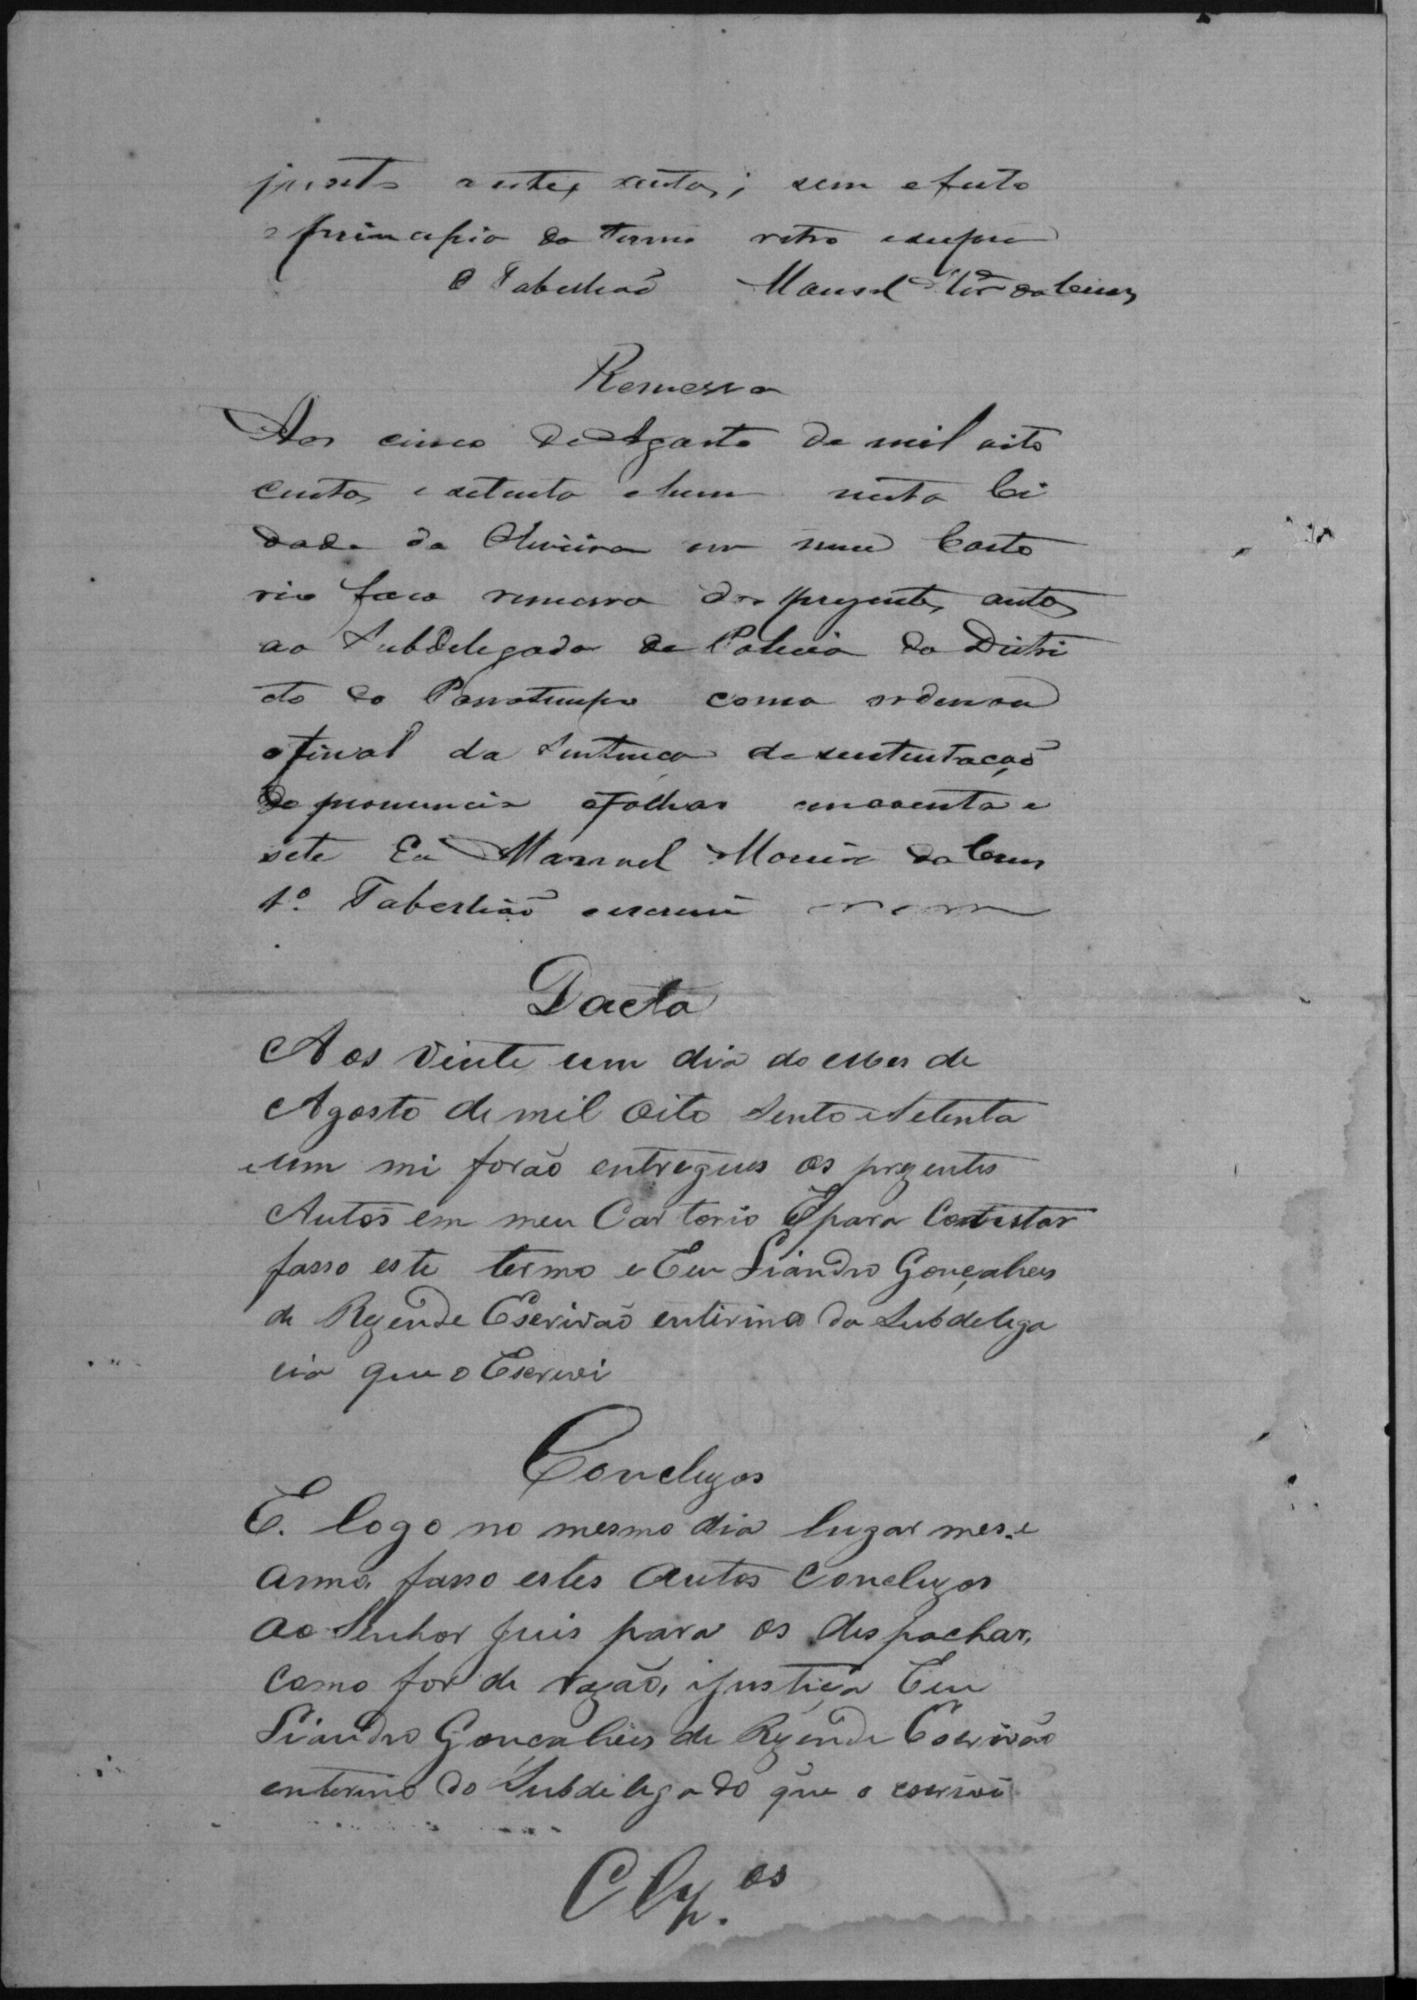 sem efeito
principio do termo retro
O Tabelliaõ Manoel da Cruz
Remessa
Aos cinco de Agosto de mil oito
centos e setenta e hum nesta Ci
dade da Oliveira em meu Carto
rio faco remessa dos prezentes autos
ao Subdelegado de Policia do Distri
cto do Passatempo como ordena
o final da Sentença de sustentação
de pronuncia a folhas cincoenta e
sete Eu Manoel Moreira da Cruz
1º. Tabelliaõ escrevi
Dacta
Aos vinte um dia do mes de
Agosto de mil oito sento e setenta
e um mi forão entregues os prezentes
Autos em meu Cartorio E para Constar
fasso este termo e Eu Liandro Gonçalves
de Rezende Escrivão enterino da Subdelega
cia que o Escrivi
Concluzos
E. logo no mesmo dia lugar mes. e
anno, fasso estes autos Concluzos
ao Senhor Juis para os despachar,
como for de razão, i justiça Eu
Liandro Goncalveis de Rezende Escrivão
enterino do Subdelegado que o escrivi
Clz.os